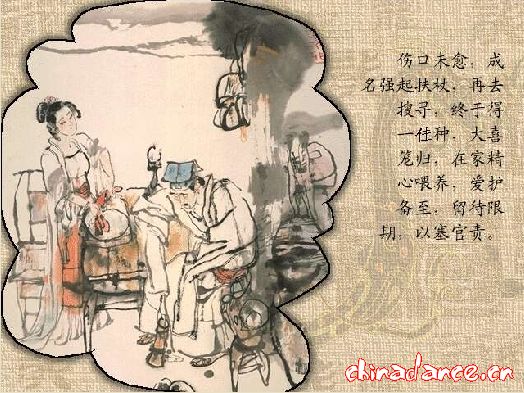 伤口未愈，成
名强起扶杖，再去
搜寻，终于得
一佳种，大喜
笼归，在家精
心喂养，爱护
备至，留待限
期，以塞官责。
chinadance.cn